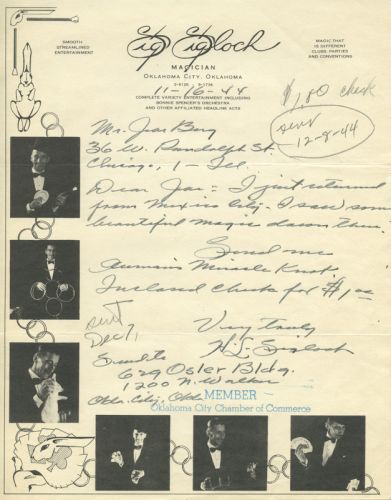 Sig Sigloch
SMOOTH
STREAMLINED
ENTERTAINMENT
MAGICIAN
OKLAHOMA CITY, OKLAHOMA
MAGIC THAT
IS DIFFERENT
CLUBS, PARTIES
AND CONVENTIONS
11-16-44
COMPLETE VARIETY ENTERTAINMENT INCLUDING
BONNIE SPENCER'S ORCHESTRA
AND OTHER AFFILIATED HEADLINE ACTS
check
sent
12-8-44
Mr. Joe Berg
36 W. Randolph St.
Chicago, 1 - Ill.
Dear Joe: - I just returned
from Mexico City. I saw some
beautiful magic down there.
Send me
Miracle Knot.
Inclosed Check for $1.00
sent
Dec 7,
Very truly
H. L. Sigloch
Send to
629 Osler Bldg.
1200 N. Walker
Okla. City, Okla
MEMBER
Oklahoma City Chamber of Commerce